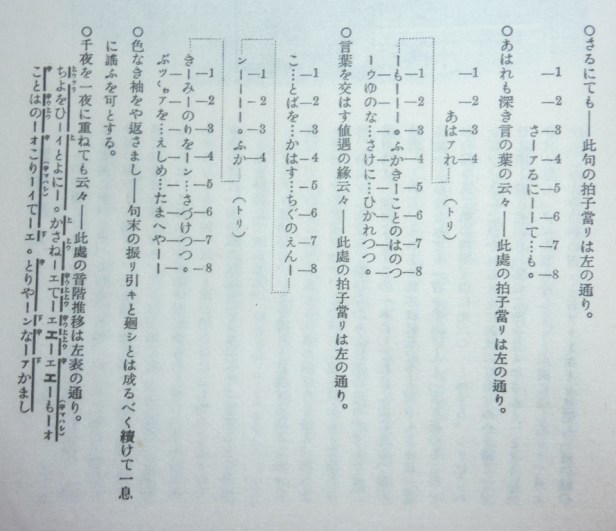 〇さるにても――此句の拍子當リは左の通り。
―1 ―2 ―3 ―4 ―5 ―6 ―7 ―8
さーァるにーーて…も。
〇あはれも深き言の葉の云々――此處の拍子當リは左の通り。
―1 ―2 ―3 ―4
あはァれ…（トリ）
―1 ―2 ―3 ―4 ―5 ―6 ―7 ―8
…ーもーーー。ふかきーことのはのつ
ーゥゆのな…さけに…ひかれつつ。
〇言葉を交はす値遇の緣云々――此處の拍子當リは左の通り。
―1 ―2 ―3 ―4 ―5 ―6 ―7 ―8
こ…とばを…かはす…ちぐのえんー…
―1 ―2 ―3 ―4
ンーーーー。ふか（トリ）
―1 ―2 ―3 ―4 ―5 ―6 ―7 ―8
きーみーのりをーン…さづけつつ。
ぶッくヮァを…えしめ…たまへやーー
〇色なき袖をや返さまし――句末の振リ引キと廻シとは成るべく續けて一息
に謠ふを可とする。
〇千夜を一夜に重ねても云々――此處の音階推移は左表の通り。
ちよをひーィとよにーー。かさねーェてーェエーェエーもーォ
ことはのーォこりーィてーェ。とりやーンなーァかまし